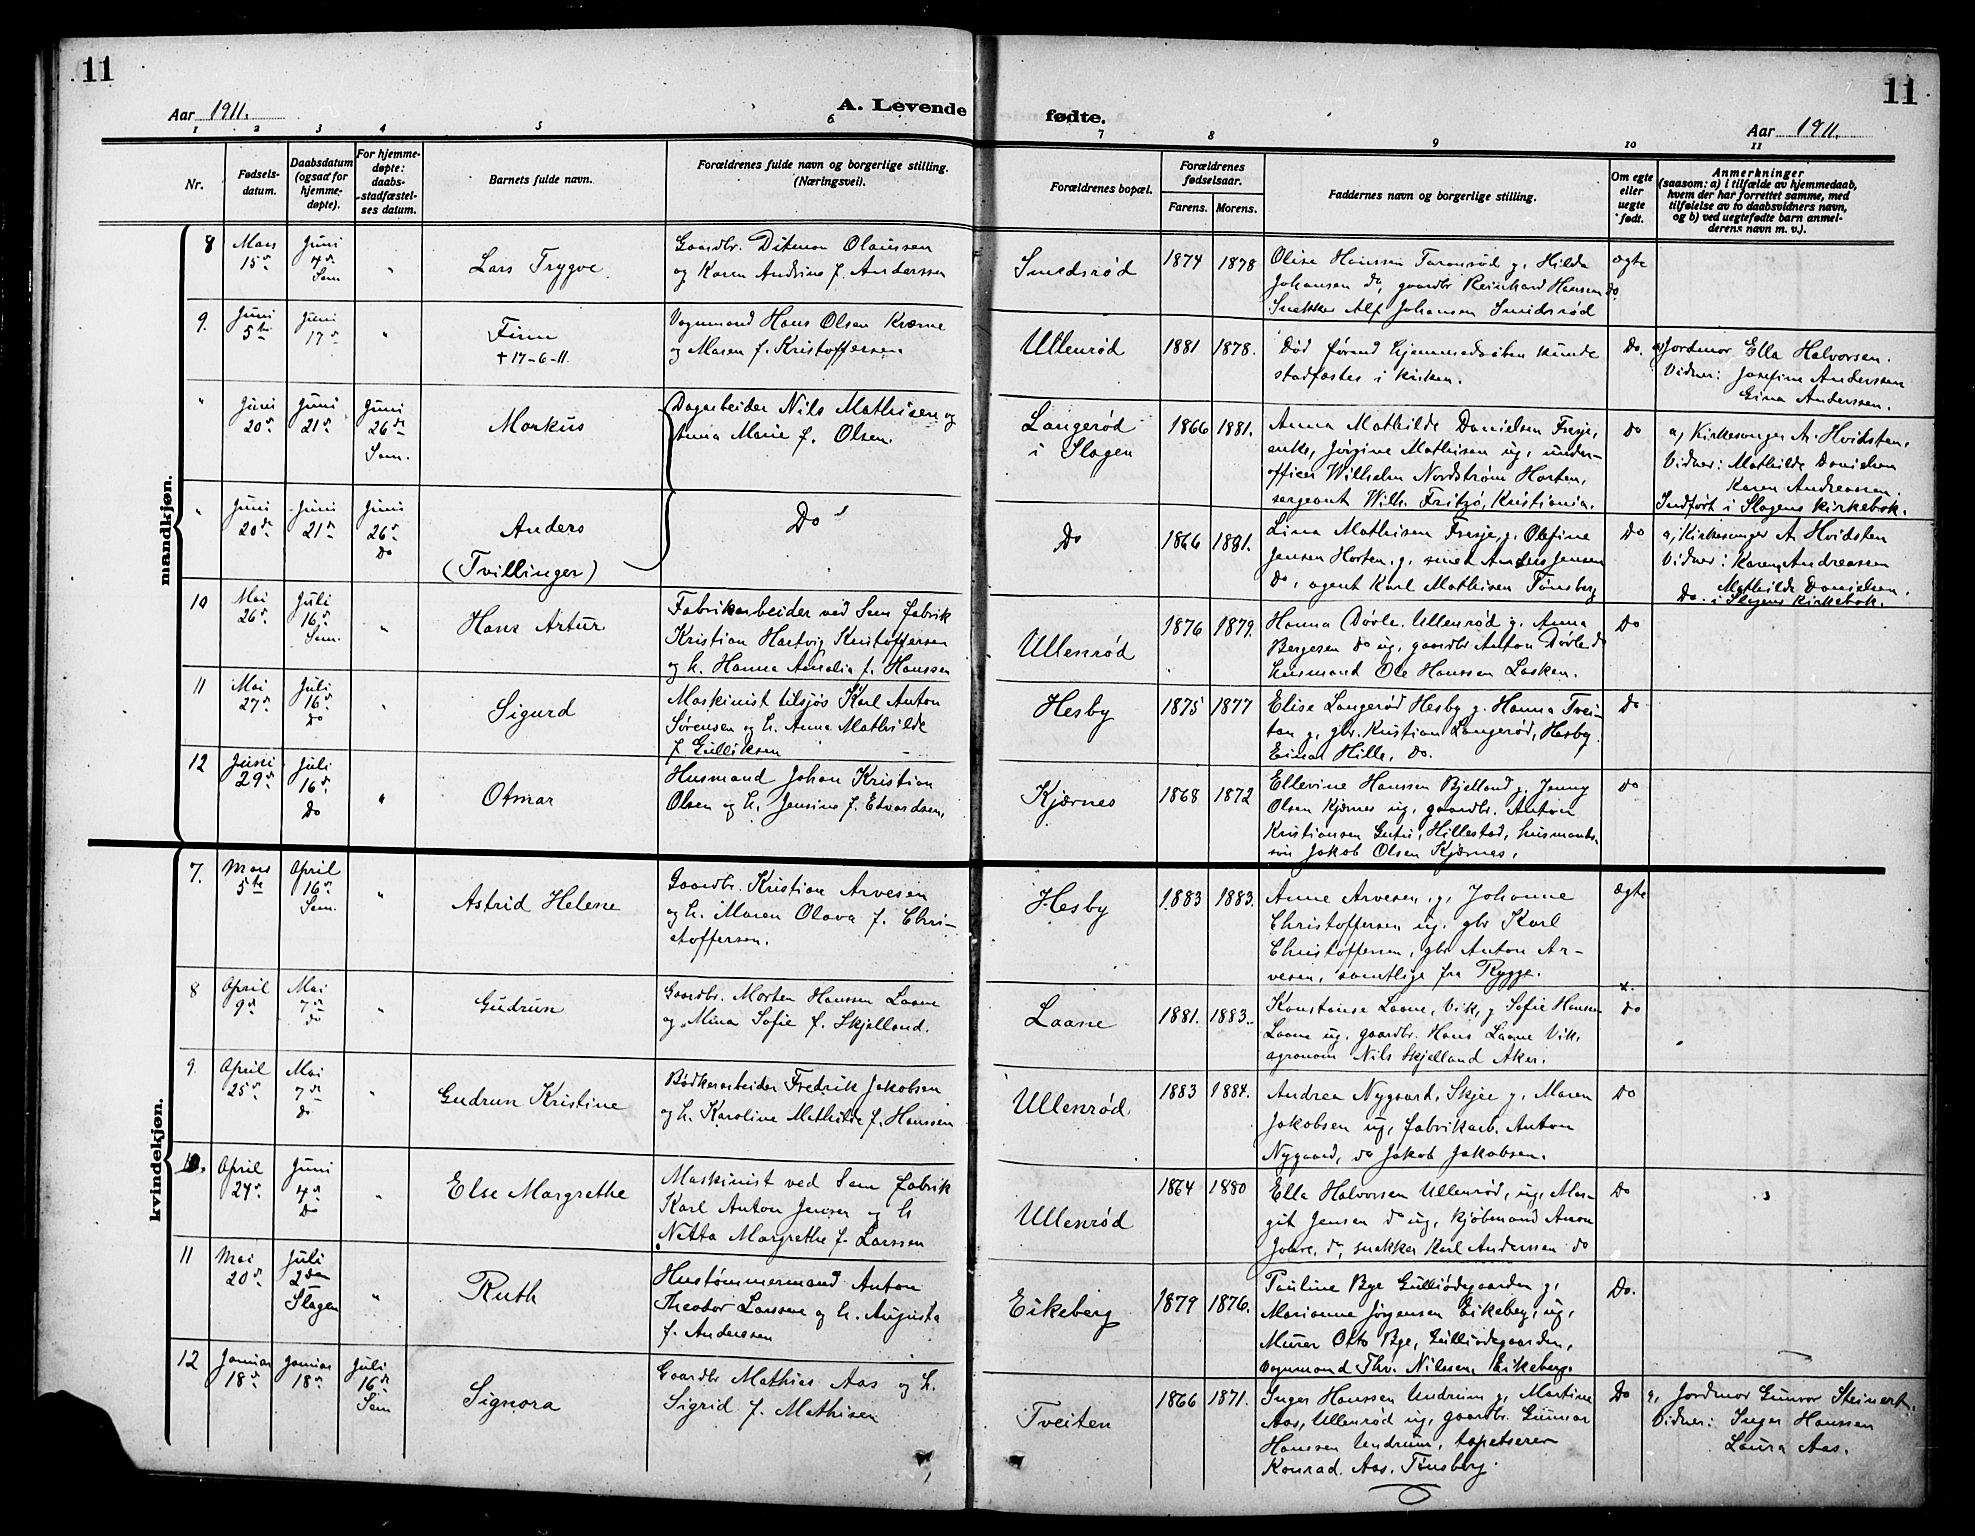 11
11
Aar 1911.
A. Levende
fødte.
Aar 1911.
1 2 3 4 5 6 7 8 9 10 11
Nr.
Fødsels-
datum.
Daabsdatum
(ogsaa for
hjemme-
døpte).
For hjemme-
døpte:
daabs-
stadfæstel-
ses datum.
Barnets fulde navn.
Forældrenes fulde navn og borgerlige stilling.
(Næringsvei).
Forældrenes bopæl.
Forældrenes
fødselsaar.
Farens. Morens.
Faddernes navn og borgerlige stilling.
Om egte
eller
uegte
født.
Anmerkninger
(saasom: a) i tilfælde av hjemmedaab,
hvem der har forrettet samme, med
tilføielse av to daabsvidners navn,
og b) ved uegtefødte barn anmel-
derens navn m. v.).
mandkjøn.
8
Mars
15de
Juni
4de
Sem
"
Lars Trygve.
Gaardbr. Ditman Olaussen
og Karen Andrine f. Anderssen
Smedsrød
1874 1878
Olise Hanssen g. Hilda
Johansen do, gaardbr Reinhard Hansen do
Snekker Alf Johansen Smidsrød
ægte
9.
Juni
5te
Juni
17de
"
Finn
† 17-6-11.
Vognmand Hans Olsen Kværne
og Maren f. Kristoffersen.
Ullenrød
1881 1878.
Død førend hjemmedaaben kunde
stadfæstes i kirken.
Do.
a) Jordmor Ella Halvorsen.
Vidner: Josefine Anderssen
Eina Anderssen.
"
Juni
20de
Juni
21de
Juni
26de
Sem.
Markus
Dagarbeider Nils Mathisen og
Anna Marie f. Olsen.
Langerød
i Slagen
1866 1881.
Anna Mathilde Danielsen Fresje,
enke, Jørgine Mathisen ug, under-
officer Wilhelm Nordstrøm Horten,
sergeant Wilh. Fritzø, Kristiania.
Do
a, Kirkesanger A. Hvidsten.
Vidner: Mathilde Danielsen
Karen Andreassen.
Indført i Slagens kirkebok.
"
Juni
20de
Juni
21de
Juni
26de
Do
Anders
(Tvillinger)
Do
Do
1866 1881.
Lina Mathisen Fresje, g. Olefine
Jensen Horten, g. smed Anders Jensen
Do, agent Karl Mathisen Tønsberg
Do
a, Kirkesanger A. Hvidsten
Vidner: Karen Andreassen
Mathilde Danielsen.
Do. i Slagens Kirkebok.
10
Mai
26de
Juli
16de
Sem.
"
Hans Artur
Fabrikarbeider ved Sem fabrik
Kristian Hartvig Kristoffersen
og h. Hanna Amalia f. Hanssen
Ullenrød
1876 1879.
Hanna Døvle. Ullenrød g. Anna
Bergesen do ug, gaardbr Anton Døvle do
husmand Ole Hanssen Lasken.
Do
11
Mai
27de
Juli
16de
Do
"
Sigurd
Maskinist tilsjøs Karl Anton
Sørensen og h. Anna Mathilde
f. Gulliksen
Hesby
1875 1877
Elise Langerød Hesby g. Hanna Tvei-
tan g, gbr. Kristian Langerød, Hesby.
Einar Hille, Do.
Do
12
Juni
29de
Juli
16de
Do
"
Otmar
Husmand Johan Kristian
Olsen og h. Jensine f. Edvardsen.
Kjærnes
1868 1872
Ellevine Hanssen Bjelland g, Jenny
Olsen Kjærnes ug, gaardbr. Anton
Kristiansen Hillestad, husmands-
søn Jakob Olsen Kjærnes.
Do
kvindekjøn.
7.
Mars
5te
April
16de
Sem.
"
Astrid Helene
Gaardbr. Kristian Arvesen
og h. Maren Olava f. Chri-
stoffersen.
Hesby
1883 1883.
Anne Arvesen g, Johanne
Christoffersen ug, gbr Karl
Christoffersen, gbr Anton Ar-
vesen, samtlige fra Rygge.
ægte
8
April
9de
Mai
7de
do
"
Gudrun
Gaardbr. Morten Hanssen Laane
og Mina Sofie f. Skjelland.
Laane
1881. 1883.
Konstanse Laane, Vik, g Sofie Hansen
Laane ug, gaardbr. Hans Laane Vik.
agronom Nils Skjelland Aker.
x.
Do
9.
April
25de
Mai
7de
Do
"
Gudrun Kristine
Bødkerarbeider Fredrik Jakobsen
og h. Karoline Mathilde f. Hanssen
Ullenrød.
1883 1884.
Andrea Nygaard, Skjee g, Maren
Jakobsen ug, fabrikarb. Anton
Nygaard, do Jakob Jakobsen.
Do
10.
April
24de
Juni
4de
Do
"
Else Margrethe
Maskinist ved Sem fabrik
Karl Anton Jensen og h
Netta Margrethe f. Larssen
Ullenrød
1864 1880
Ella Halvorsen Ullenrød, ug, Mar-
git Jensen do ug, kjøbmand Anton
do, snekker Karl Anderssen do
Do
11
Mai
20de
Juli
2den
Slagen
"
Ruth
Hustømmermand Anton
Theodor Larssen og h. Augusta
f. Anderssen
Eikeberg
1879 1876.
Pauline Bye Gulliødegaarden g,
Marianne Jørgensen Eikeberg, ug,
Murer Otto Bye, Gulliødegaarden,
Vognmand Thv. Nilssen, Eikeberg.
Do.
12
Januar
18de
Januar
18de
Juli
16de
Sem
Signora
Gaardbr Mathias Aas og h.
Sigrid f. Mathisen
Tveiten
1866 1871.
Inger Hanssen Undrum g, Martine
Aas, Ullenrød ug, gaardbr. Gunnar
Hanssen Undrum, tapetserer
Konrad Aas, Tønsberg.
Do
a, Jordmor Gunvor Steinert.
Vidner: Inger Hanssen
Laura Aas.